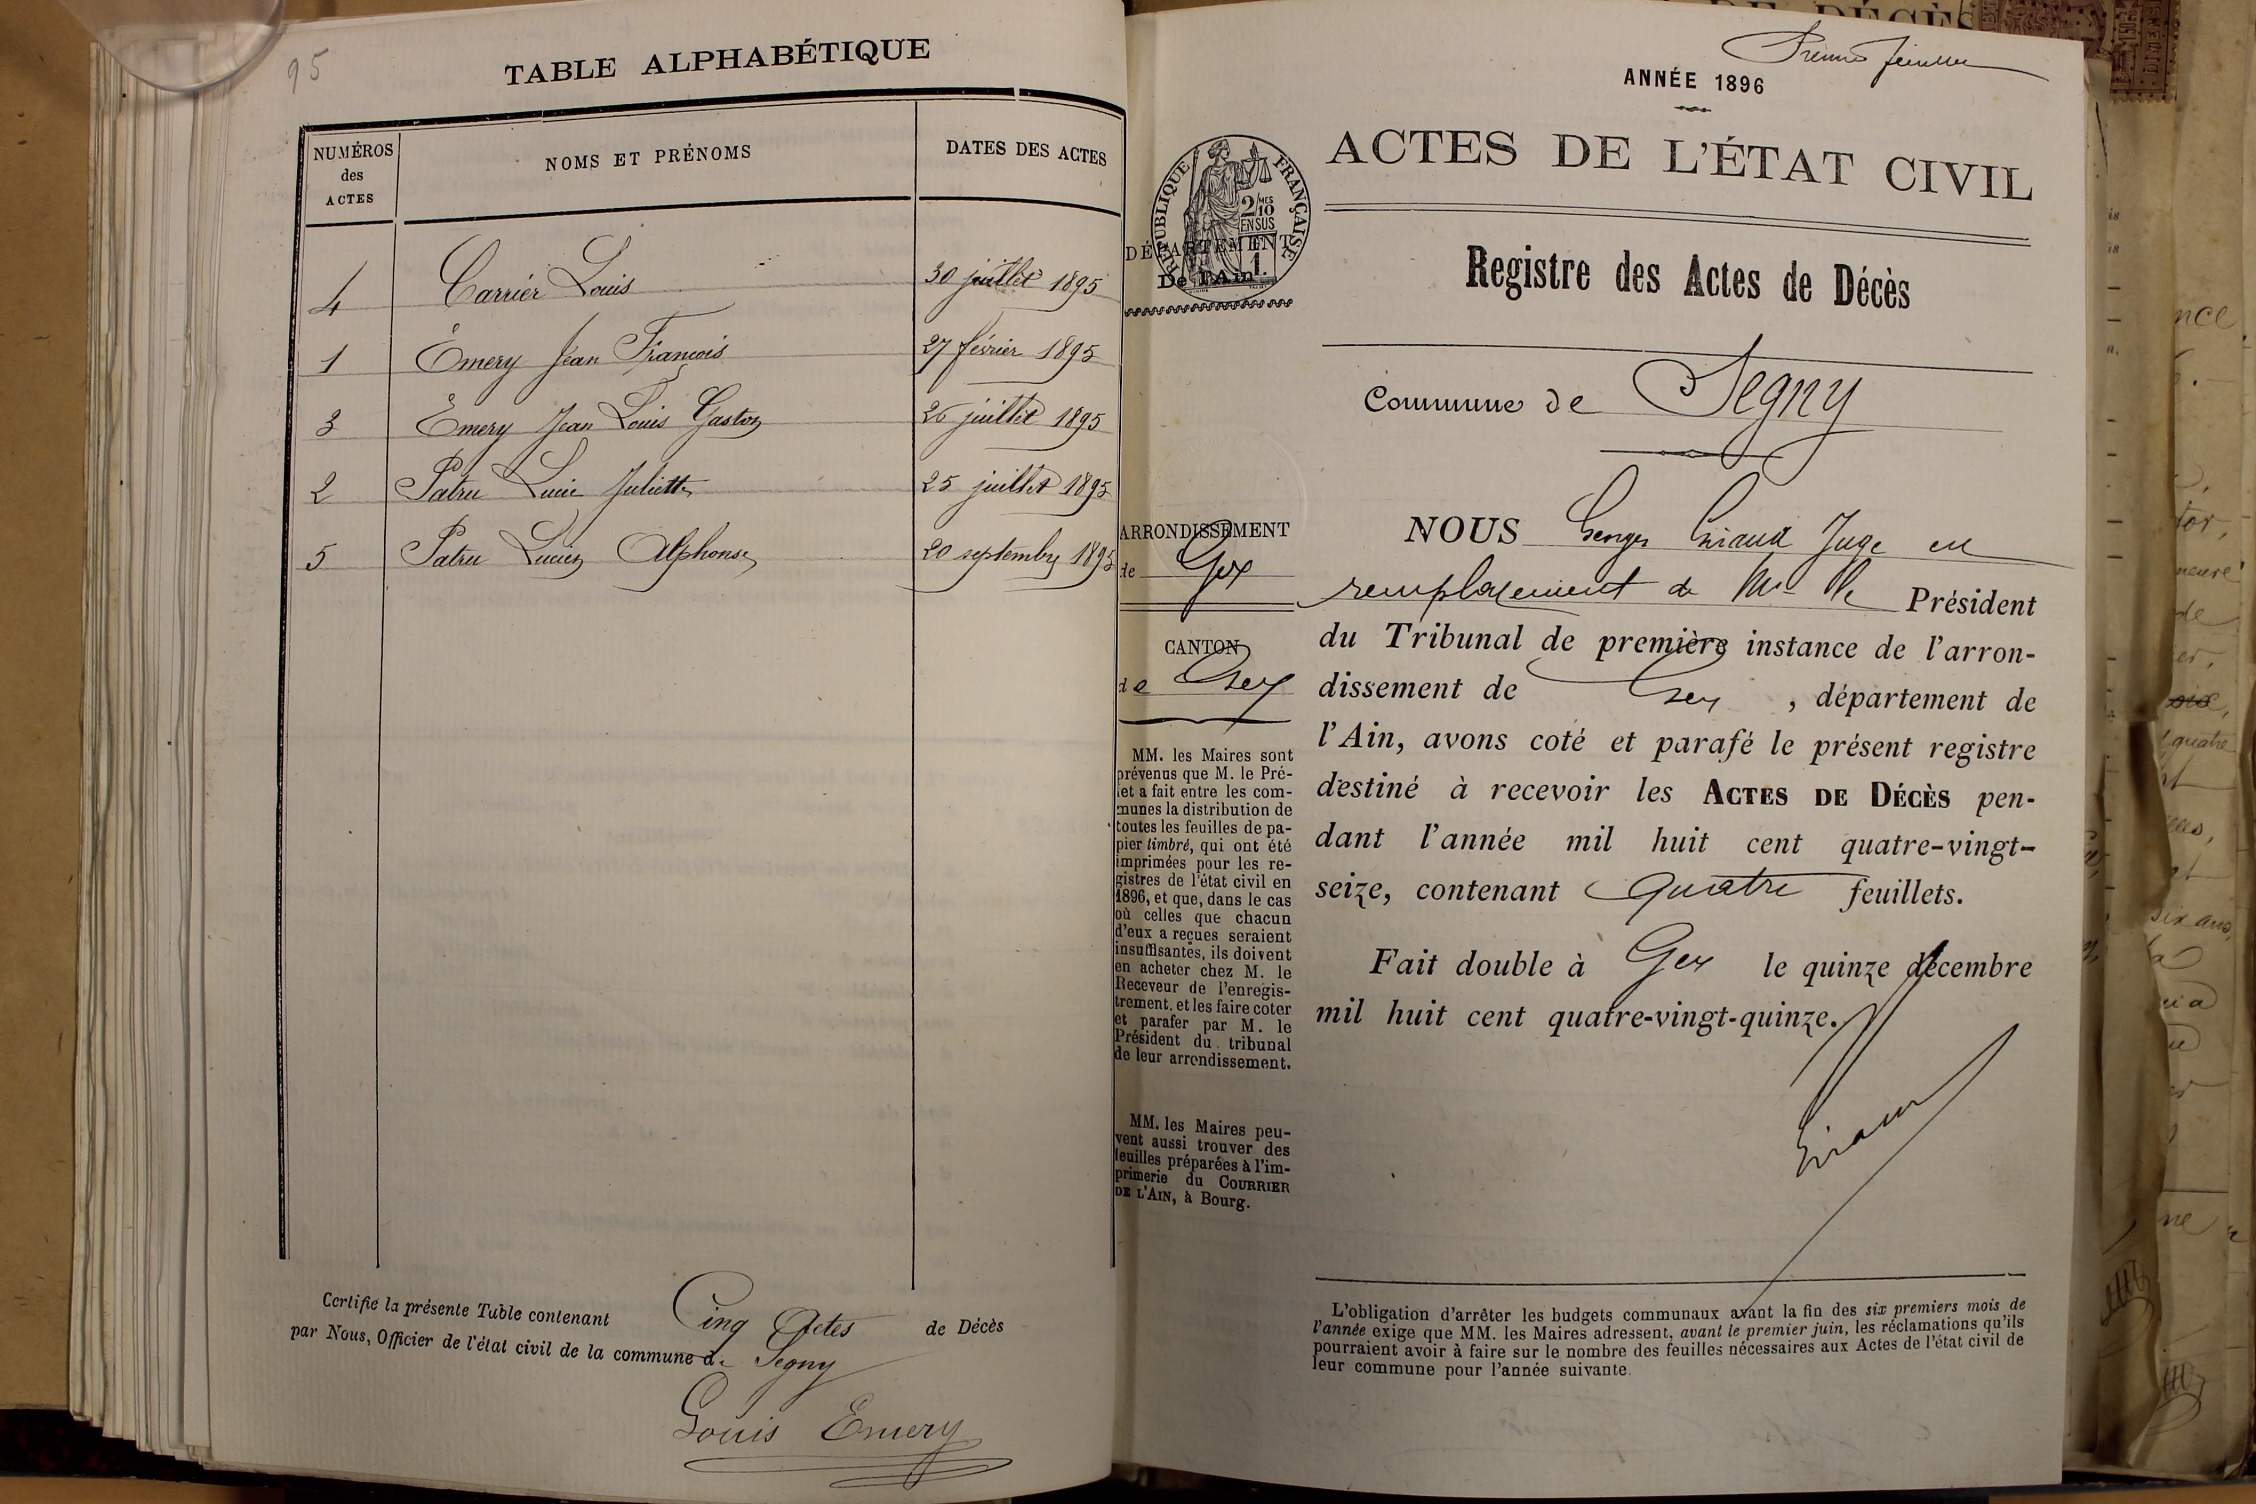 95
TABLE ALPHABÉTIQUE
NUMÉROS des ACTES
NOMS ET PRÉNOMS
DATES DES ACTES
4 Carrier Louis 30 juillet 1895
1 Emery Jean François 27 février 1895
3 Emery Jean Louis Gaston 26 juillet 1895
2 Patru Lucie Juliette 25 juillet 1895
5 Patru Lucien Alphonse 20 septembre 1895
Certifié la présente Table contenant Cinq Actes de Décès
par Nous, Officier de l'état civil de la commune de Segny
Louis Emery
Premier feuillet
ANNÉE 1896
ACTES DE L'ÉTAT CIVIL
RÉPUBLIQUE FRANÇAISE
2/10 MES
EN SUS
1F.
DÉPARTEMENT
De l'Ain
Registre des Actes de Décès
Commune de Segny
ARRONDISSEMENT
de Gex
CANTON
de Gex
MM. les Maires sont
prévenus que M. le Pré-
fet a fait entre les com-
munes la distribution de
toutes les feuilles de pa-
pier timbré, qui ont été
imprimées pour les re-
gistres de l'état civil en
1896, et que, dans le cas
où celles que chacun
d'eux a reçues seraient
insuffisantes, ils doivent
en acheter chez M. le
Receveur de l'enregis-
trement, et les faire coter
et parafer par M. le
Président du tribunal
de leur arrondissement.
MM. les Maires peu-
vent aussi trouver des
feuilles préparées à l'im-
primerie du COURRIER
DE L'AIN, à Bourg.
NOUS Georges Giraud Juge en
remplacement de Mr le Président
du Tribunal de première instance de l'arron-
dissement de Gex, département de
l'Ain, avons coté et parafé le présent registre
destiné à recevoir les ACTES DE DÉCÈS pen-
dant l'année mil huit cent quatre-vingt-
seize, contenant quatre feuillets.
Fait double à Gex le quinze décembre
mil huit cent quatre-vingt-quinze.
Giraud
L'obligation d'arrêter les budgets communaux avant la fin des six premiers mois de
l'année exige que MM. les Maires adressent, avant le premier juin, les réclamations qu'ils
pourraient avoir à faire sur le nombre des feuilles nécessaires aux Actes de l'état civil de
leur commune pour l'année suivante.